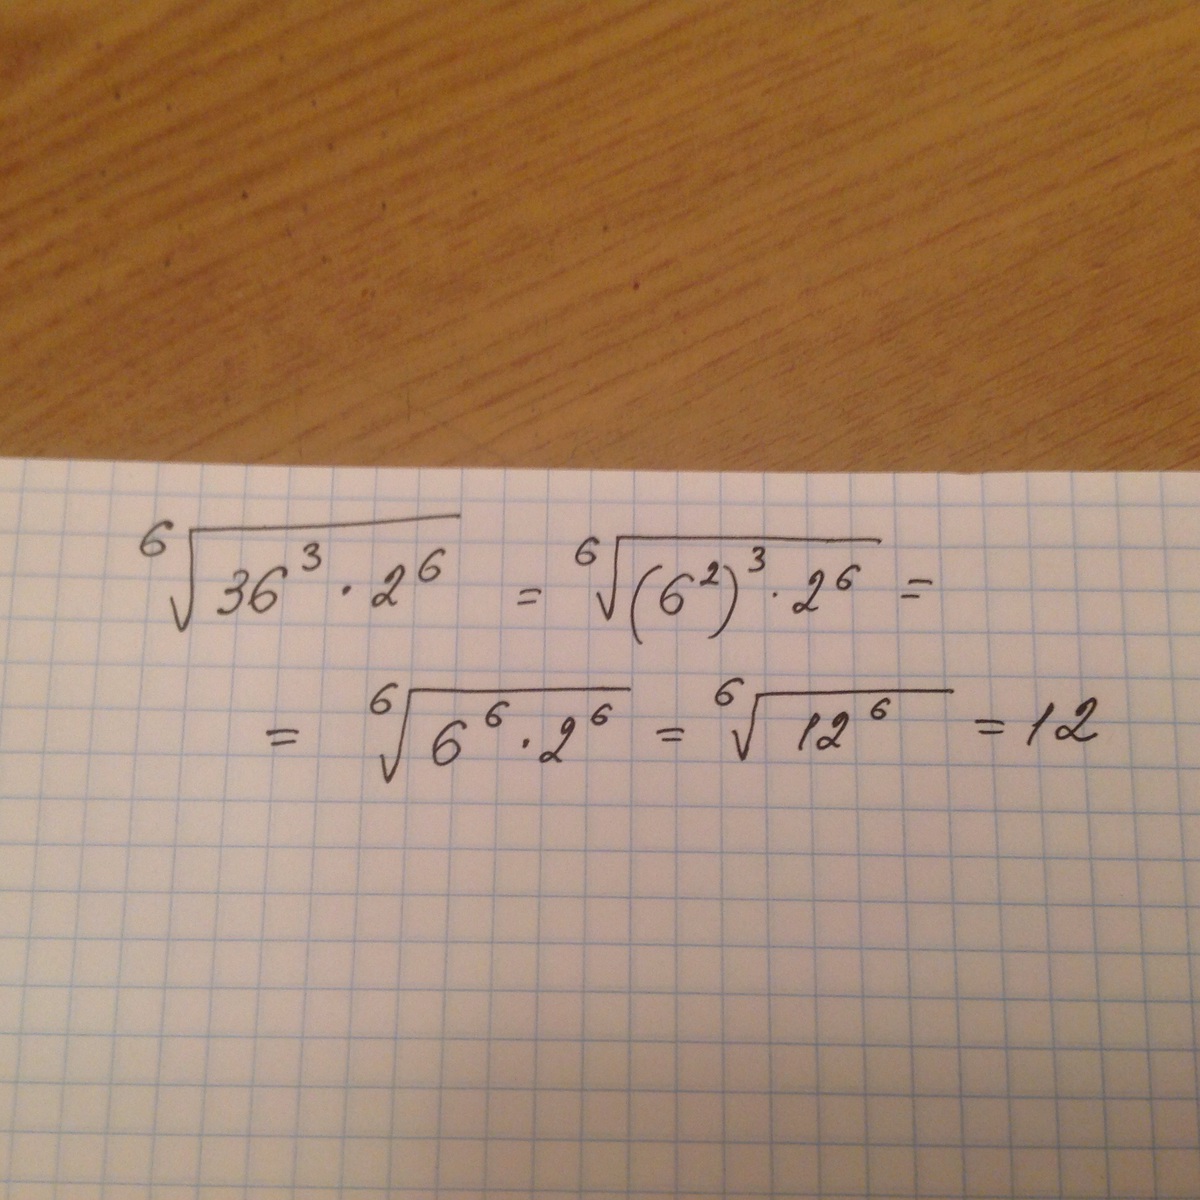 ⁶√(36³ · 2⁶) = ⁶√((6²)³ · 2⁶) =
= ⁶√(6⁶ · 2⁶) = ⁶√(12⁶) = 12